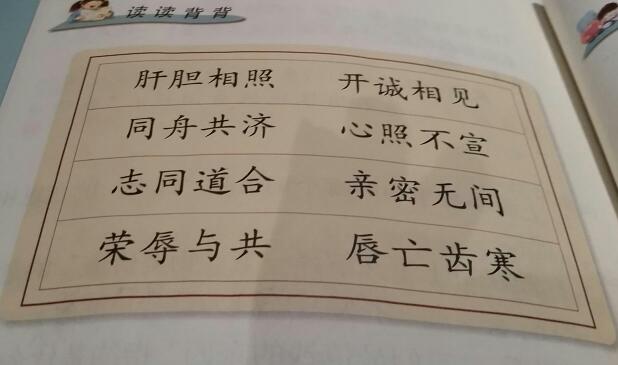 读读背背
肝胆相照 开诚相见
同舟共济 心照不宣
志同道合 亲密无间
荣辱与共 唇亡齿寒